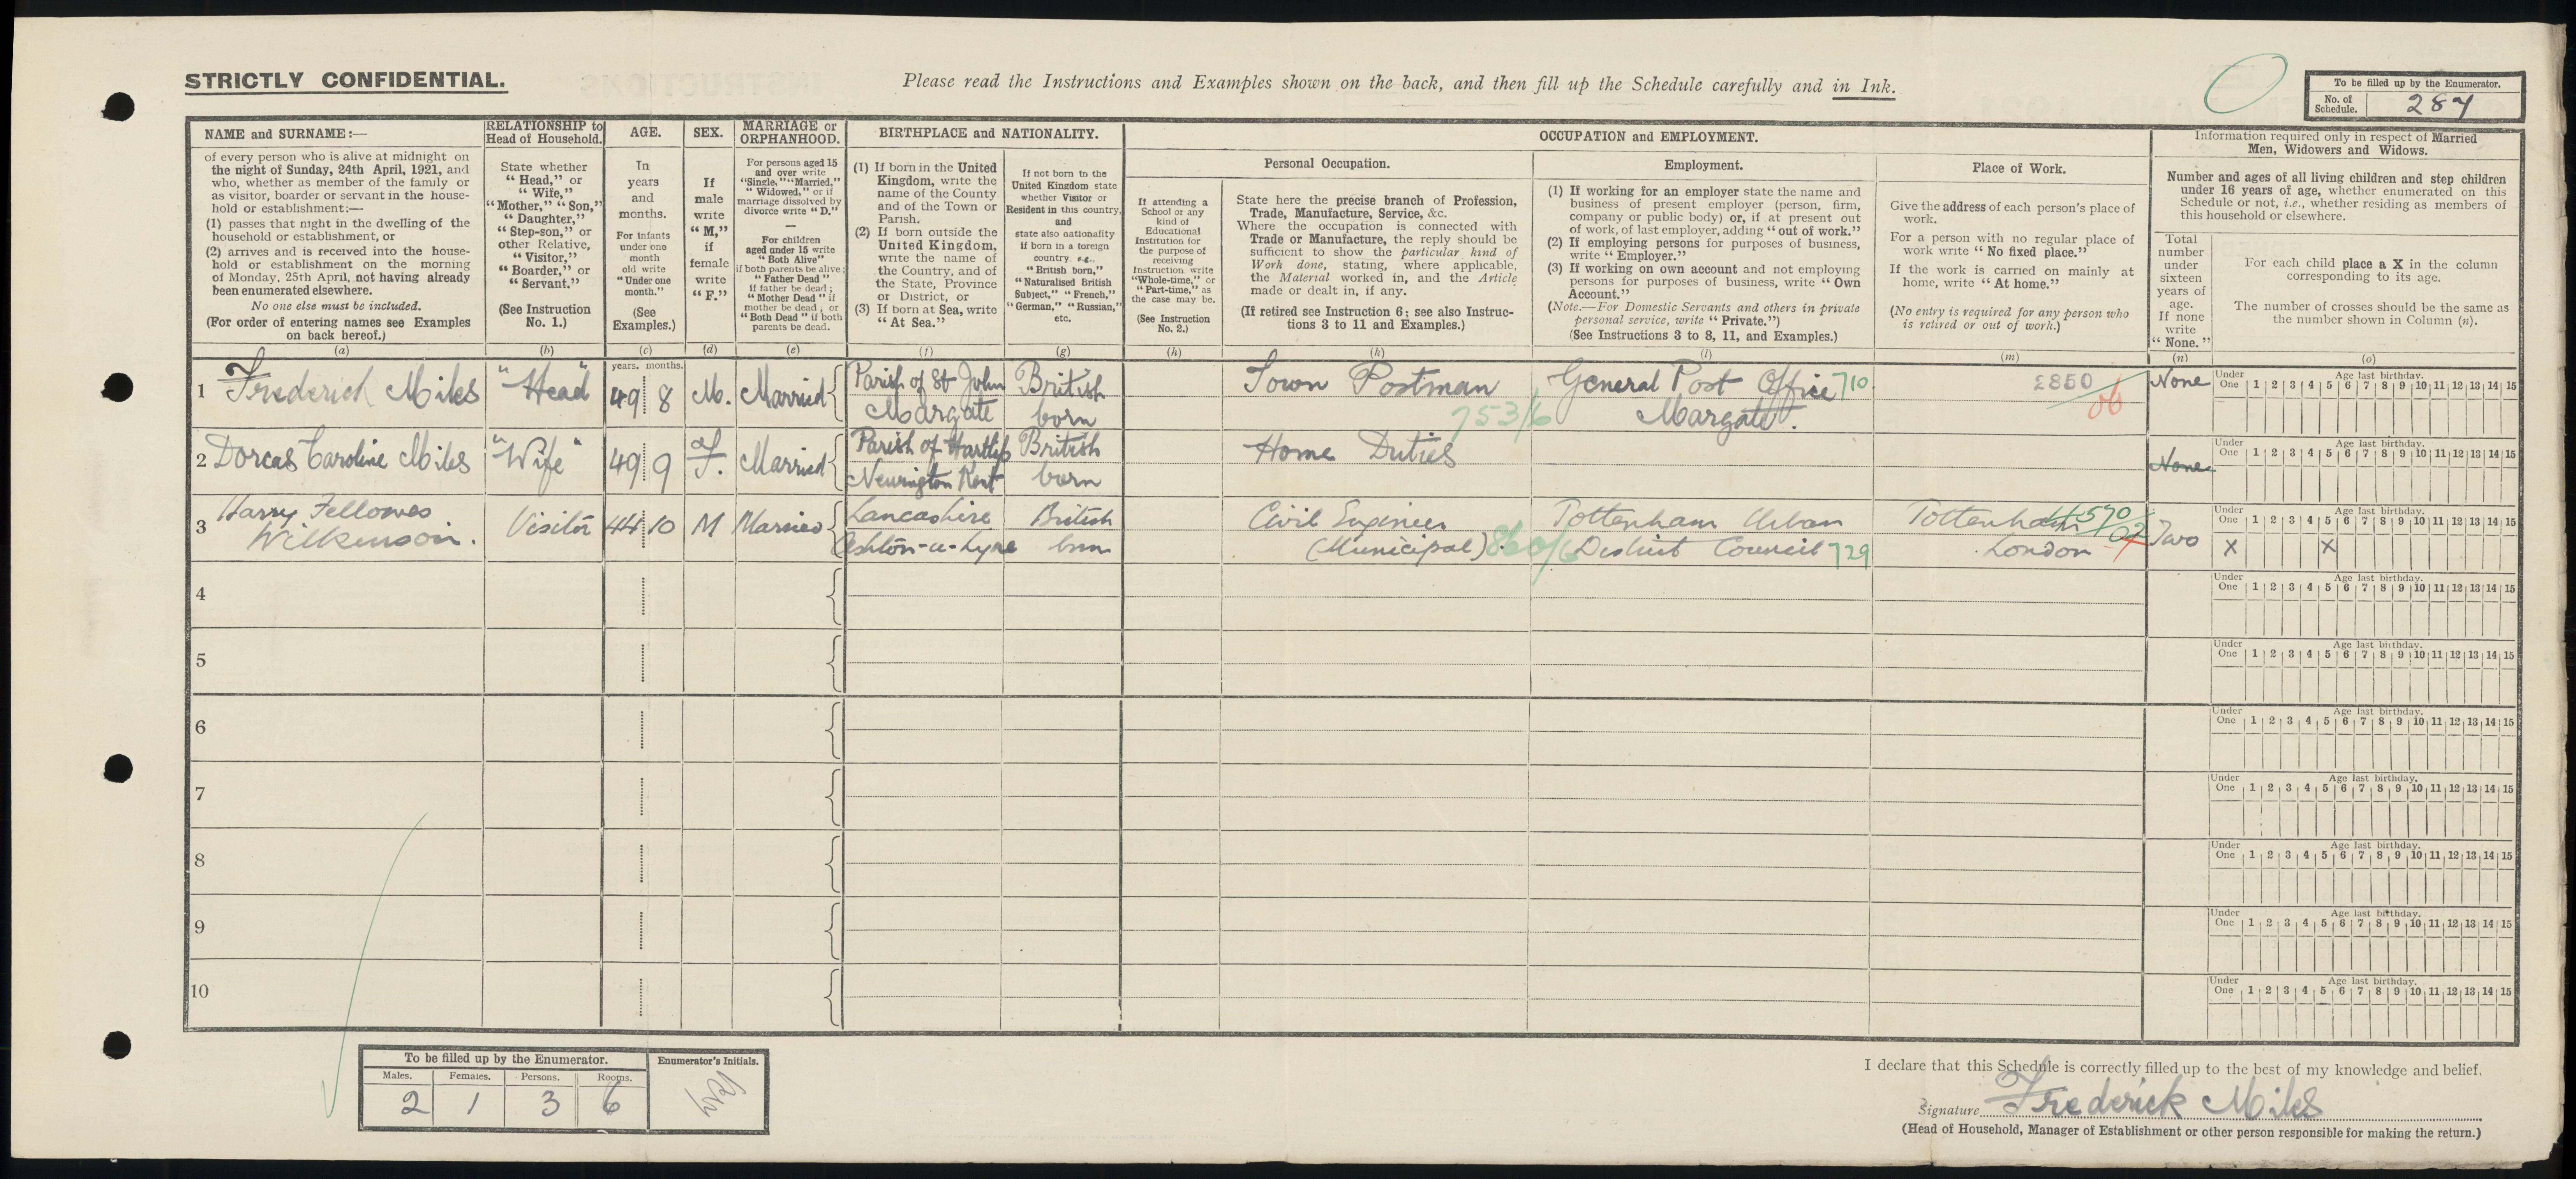 STRICTLY CONFIDENTIAL.
Please read the Instructions and Examples shown on the back, and then fill up the Schedule carefully and in Ink.
To be filled up by the Enumerator.
No. of Schedule. 287
NAME and SURNAME:—
of every person who is alive at midnight on
the night of Sunday, 24th April, 1921, and
who, whether as member of the family or
as visitor, boarder or servant in the house-
hold or establishment:—
(1) passes that night in the dwelling of the
household or establishment, or
(2) arrives and is received into the house-
hold or establishment on the morning
of Monday, 25th April, not having already
been enumerated elsewhere.
No one else must be included.
(For order of entering names see Examples
on back hereof.)
(a)
RELATIONSHIP to
Head of Household.
State whether
"Head," or
"Wife,"
"Mother," "Son,"
"Daughter,"
"Step-son," or
other Relative,
"Visitor,"
"Boarder," or
"Servant."
(See Instruction
No. 1.)
(b)
AGE.
In
years
and
months.
For infants
under one
month
old write
"Under one
month."
(See
Examples.)
(c)
years. months.
SEX.
If
male
write
"M,"
if
female
write
"F."
(d)
MARRIAGE or
ORPHANHOOD.
For persons aged 15
and over write
"Single," "Married,"
"Widowed," or if
marriage dissolved by
divorce write "D."
—
For children
aged under 15 write
"Both Alive"
if both parents be alive;
"Father Dead"
if father be dead;
"Mother Dead" if
mother be dead; or
"Both Dead" if both
parents be dead.
(e)
BIRTHPLACE and NATIONALITY.
(1) If born in the United
Kingdom, write the
name of the County
and of the Town or
Parish.
(2) If born outside the
United Kingdom,
write the name of
the Country, and of
the State, Province
or District, or
(3) If born at Sea, write
"At Sea."
(f)
If not born in the
United Kingdom state
whether Visitor or
Resident in this country,
and
state also nationality
if born in a foreign
country. e.g.,
"British born,"
"Naturalised British
Subject," "French,"
"German," "Russian,"
etc.
(g)
OCCUPATION and EMPLOYMENT.
If attending a
School or any
kind of
Educational
Institution for
the purpose of
receiving
Instruction write
"Whole-time," or
"Part-time," as
the case may be.
(See Instruction
No. 2.)
(h)
Personal Occupation.
State here the precise branch of Profession,
Trade, Manufacture, Service, &c.
Where the occupation is connected with
Trade or Manufacture, the reply should be
sufficient to show the particular kind of
Work done, stating, where applicable,
the Material worked in, and the Article
made or dealt in, if any.
(If retired see Instruction 6; see also Instruc-
tions 3 to 11 and Examples.)
(k)
Employment.
(1) If working for an employer state the name and
business of present employer (person, firm,
company or public body) or, if at present out
of work, of last employer, adding "out of work."
(2) If employing persons for purposes of business,
write "Employer."
(3) If working on own account and not employing
persons for purposes of business, write "Own
Account."
(Note.—For Domestic Servants and others in private
personal service, write "Private.")
(See Instructions 3 to 8, 11, and Examples.)
(l)
Place of Work.
Give the address of each person's place of
work.
For a person with no regular place of
work write "No fixed place."
If the work is carried on mainly at
home, write "At home."
(No entry is required for any person who
is retired or out of work.)
(m)
Information required only in respect of Married
Men, Widowers and Widows.
Number and ages of all living children and step children
under 16 years of age, whether enumerated on this
Schedule or not, i.e., whether residing as members of
this household or elsewhere.
Total
number
under
sixteen
years of
age.
If none
write
"None."
(n)
For each child place a X in the column
corresponding to its age.
The number of crosses should be the same as
the number shown in Column (n).
(o)
1 Frederick Miles "Head" 49 8 M. Married Parish of St John British Town Postman General Post Office 710 £850 06 None
Margate born 753/6 Margate.
Under One Age last birthday. 1 2 3 4 5 6 7 8 9 10 11 12 13 14 15
2 Dorcas Caroline Miles "Wife" 49 9 F. Married Parish of Hartlip British Home Duties None
Newington Kent born
Under One Age last birthday. 1 2 3 4 5 6 7 8 9 10 11 12 13 14 15
3 Harry Fellowes Visitor 44 10 M Married Lancashire British Civil Engineer Tottenham Urban Tottenham Two
Wilkinson. Ashton-u-Lyne born (Municipal). 860/6 District Council 729 London
Under One Age last birthday. 1 2 3 4 5 6 7 8 9 10 11 12 13 14 15
X X
4
Under One Age last birthday. 1 2 3 4 5 6 7 8 9 10 11 12 13 14 15
5
Under One Age last birthday. 1 2 3 4 5 6 7 8 9 10 11 12 13 14 15
6
Under One Age last birthday. 1 2 3 4 5 6 7 8 9 10 11 12 13 14 15
7
Under One Age last birthday. 1 2 3 4 5 6 7 8 9 10 11 12 13 14 15
8
Under One Age last birthday. 1 2 3 4 5 6 7 8 9 10 11 12 13 14 15
9
Under One Age last birthday. 1 2 3 4 5 6 7 8 9 10 11 12 13 14 15
10
Under One Age last birthday. 1 2 3 4 5 6 7 8 9 10 11 12 13 14 15
To be filled up by the Enumerator.
Males. Females. Persons. Rooms.
2 1 3 6
Enumerator's Initials.
I declare that this Schedule is correctly filled up to the best of my knowledge and belief.
Signature Frederick Miles
(Head of Household, Manager of Establishment or other person responsible for making the return.)